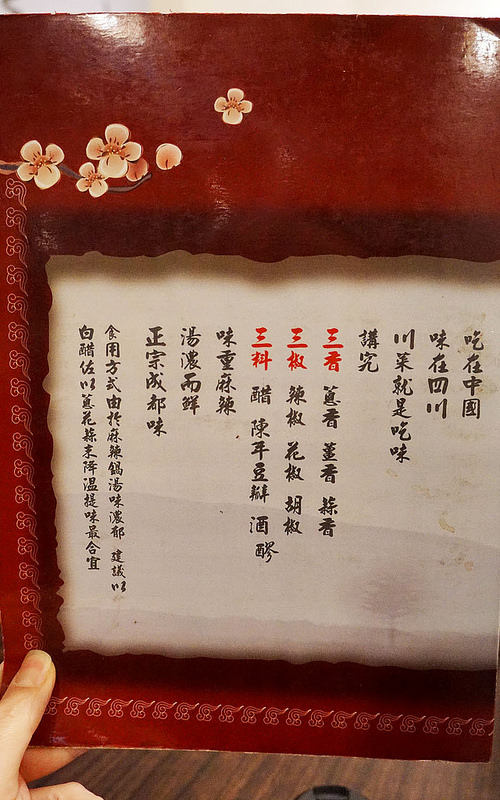 吃在中國
味在四川
川菜就是吃味
講究
三香 蔥香 薑香 蒜香
三椒 辣椒 花椒 胡椒
三料 醋 陳年豆瓣 酒醪
味重麻辣
湯濃而鮮
正宗成都味
食用方式由於麻辣鍋湯味濃郁 建議以
白醋佐以蔥花蒜末降溫提味最合宜